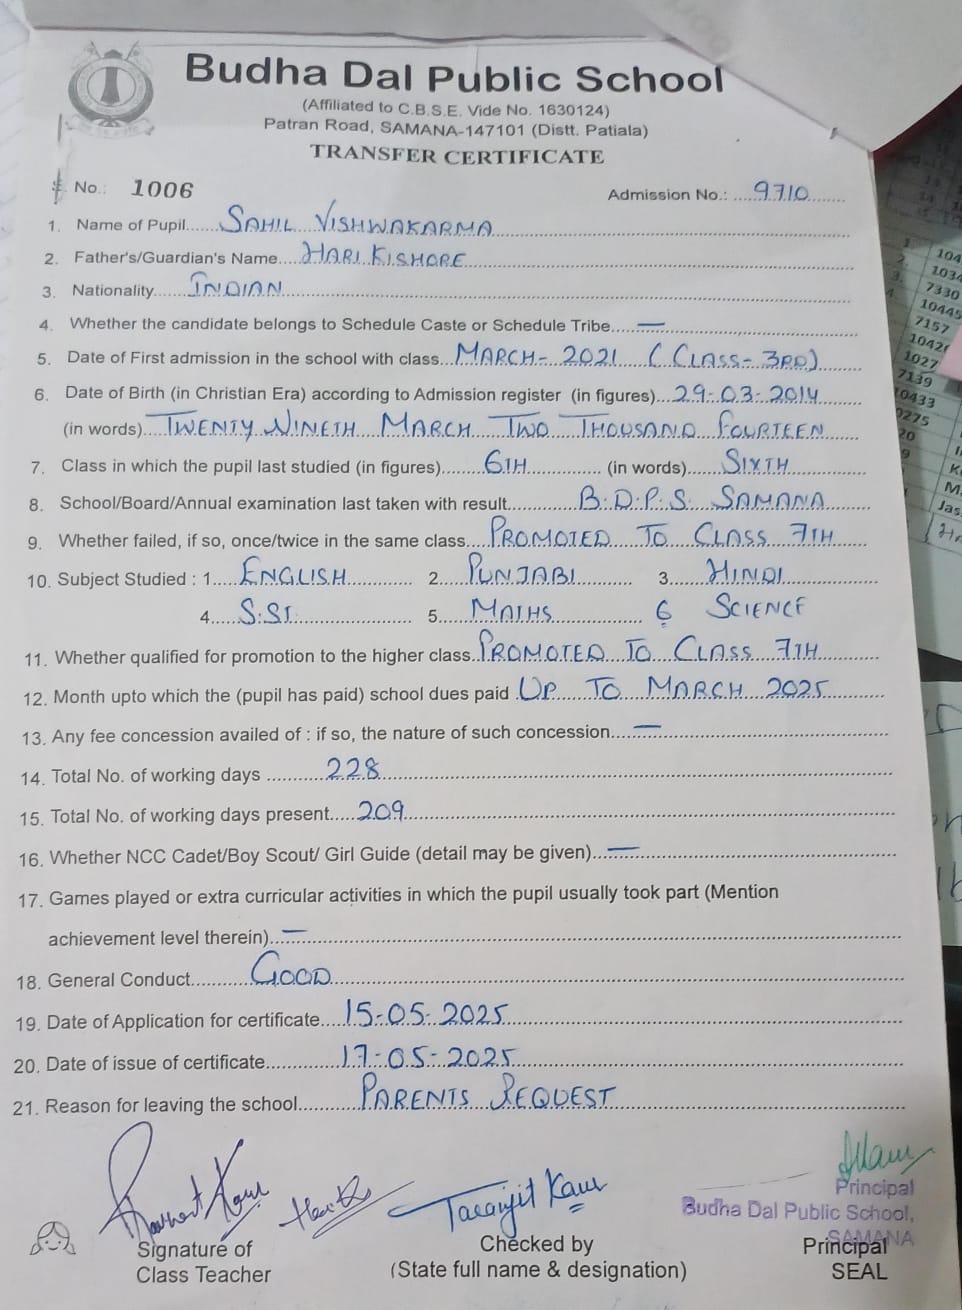 Budha Dal Public School
(Affiliated to C.B.S.E. Vide No. 1630124)
Patran Road, SAMANA-147101 (Distt. Patiala)
TRANSFER CERTIFICATE
No.: 1006 Admission No.: 9710
1. Name of Pupil SAHIL VISHWAKARMA
2. Father's/Guardian's Name HARI KISHORE
3. Nationality INDIAN
4. Whether the candidate belongs to Schedule Caste or Schedule Tribe —
5. Date of First admission in the school with class MARCH-2021 (CLASS-3RD)
6. Date of Birth (in Christian Era) according to Admission register (in figures) 29-03-2014
(in words) TWENTY NINETH MARCH TWO THOUSAND FOURTEEN
7. Class in which the pupil last studied (in figures) 6TH (in words) SIXTH
8. School/Board/Annual examination last taken with result B.D.P.S. SAMANA
9. Whether failed, if so, once/twice in the same class PROMOTED TO CLASS 7TH
10. Subject Studied : 1. ENGLISH 2. PUNJABI 3. HINDI
4. S.ST. 5. MATHS 6 SCIENCE
11. Whether qualified for promotion to the higher class PROMOTED TO CLASS 7TH
12. Month upto which the (pupil has paid) school dues paid UP TO MARCH 2025
13. Any fee concession availed of : if so, the nature of such concession —
14. Total No. of working days 228
15. Total No. of working days present 209
16. Whether NCC Cadet/Boy Scout/ Girl Guide (detail may be given) —
17. Games played or extra curricular activities in which the pupil usually took part (Mention
achievement level therein) —
18. General Conduct GOOD
19. Date of Application for certificate 15-05-2025
20. Date of issue of certificate 17-05-2025
21. Reason for leaving the school PARENTS REQUEST
Taranjit Kaur
Principal
Budha Dal Public School,
SAMANA
Signature of
Class Teacher
Checked by
(State full name & designation)
Principal
SEAL
104
1034
7330
10445
7157
1042
1027
7139
10433
0275
20